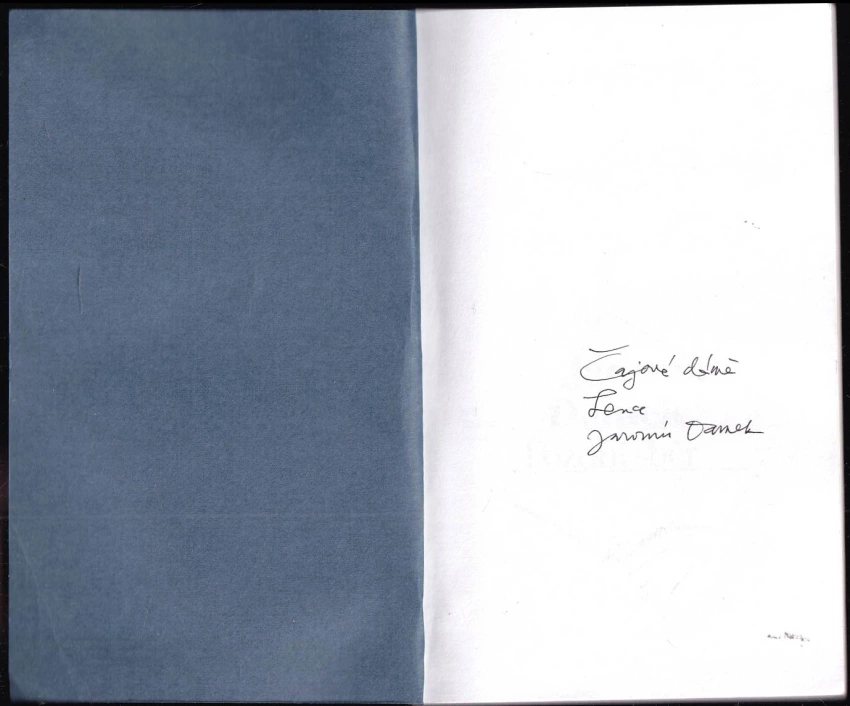 Čajové dámě
Lence
Jaromír Damek